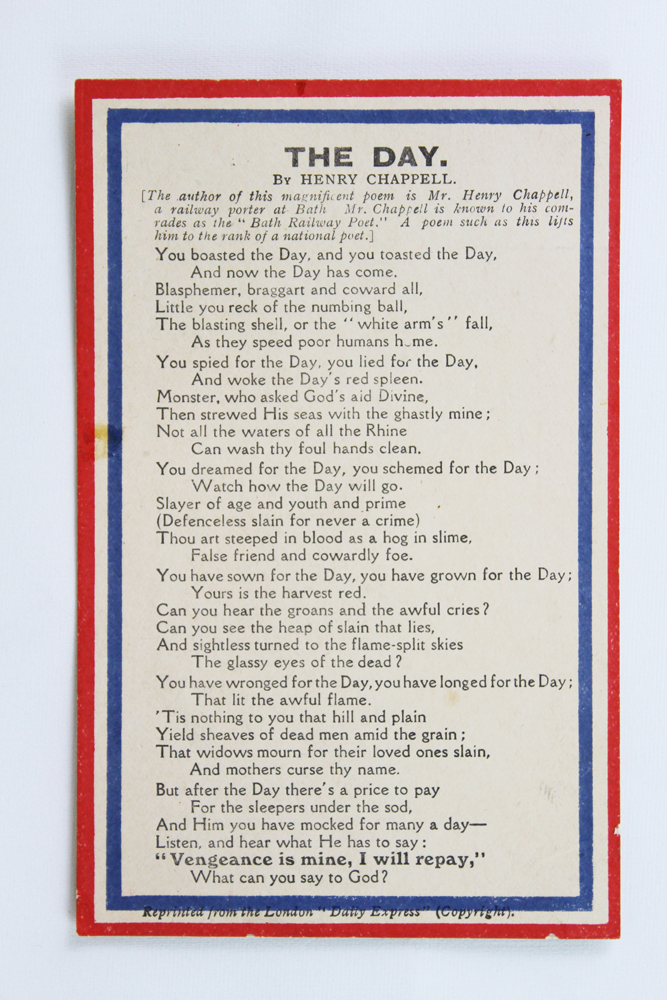 THE DAY.
BY HENRY CHAPPELL.
[The author of this magnificent poem is Mr. Henry Chappell,
a railway porter at Bath Mr. Chappell is known to his com-
rades as the "Bath Railway Poet." A poem such as this lifts
him to the rank of a national poet.]
You boasted the Day, and you toasted the Day,
And now the Day has come.
Blasphemer, braggart and coward all,
Little you reck of the numbing ball,
The blasting shell, or the "white arm's" fall,
As they speed poor humans home.
You spied for the Day, you lied for the Day,
And woke the Day's red spleen.
Monster, who asked God's aid Divine,
Then strewed His seas with the ghastly mine;
Not all the waters of all the Rhine
Can wash thy foul hands clean.
You dreamed for the Day, you schemed for the Day;
Watch how the Day will go.
Slayer of age and youth and prime
(Defenceless slain for never a crime)
Thou art steeped in blood as a hog in slime,
False friend and cowardly foe.
You have sown for the Day, you have grown for the Day;
Yours is the harvest red.
Can you hear the groans and the awful cries?
Can you see the heap of slain that lies,
And sightless turned to the flame-split skies
The glassy eyes of the dead?
You have wronged for the Day, you have longed for the Day;
That lit the awful flame.
'Tis nothing to you that hill and plain
Yield sheaves of dead men amid the grain;
That widows mourn for their loved ones slain,
And mothers curse thy name.
But after the Day there's a price to pay
For the sleepers under the sod,
And Him you have mocked for many a day—
Listen, and hear what He has to say:
"Vengeance is mine, I will repay,"
What can you say to God?
Reprinted from the London "Daily Express" (Copyright).